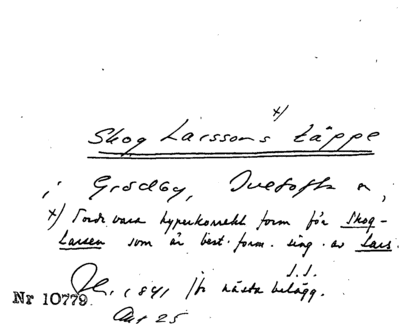 x)
Skog Larssons täppe
i Grödby, Tveta sn,
x) Torde vara hyperkorrekt form för Skog-
Larsen som är best. form. sing. av Lars.
J.S.
1841 / Jr nästa belägg.
Nr 10779
25